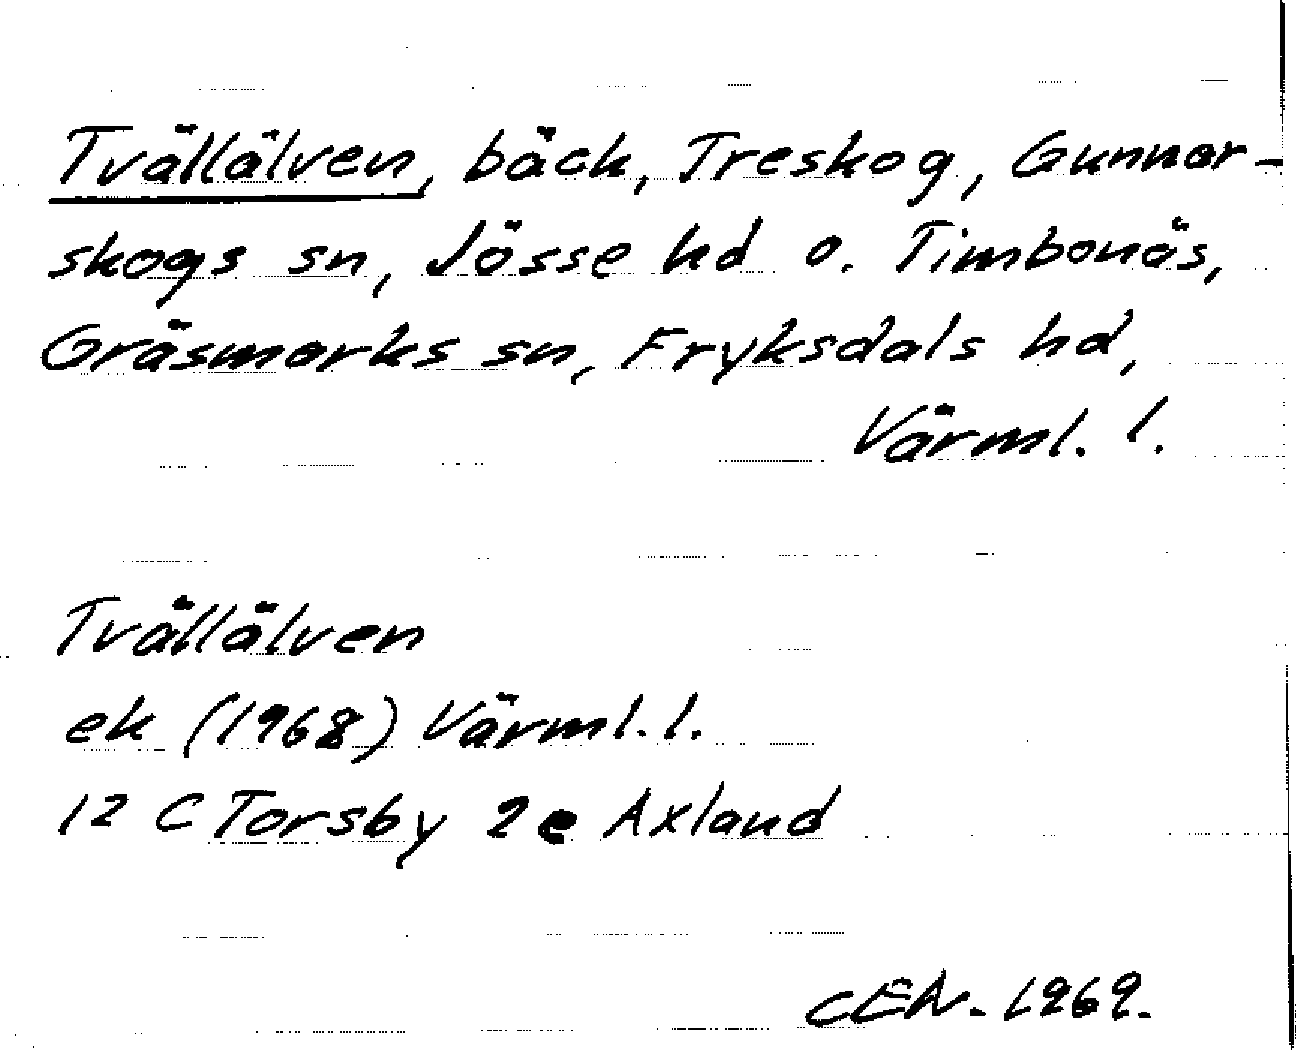 Tvällälven, bäck, Treskog, Gunnar-
skogs sn, Jösse hd o. Timbonäs,
Gräsmarks sn, Fryksdals hd,
Värml. l.
Tvällälven
ek (1968) Värml. l.
12 C Torsby 2e Axland
CEN. 1969.